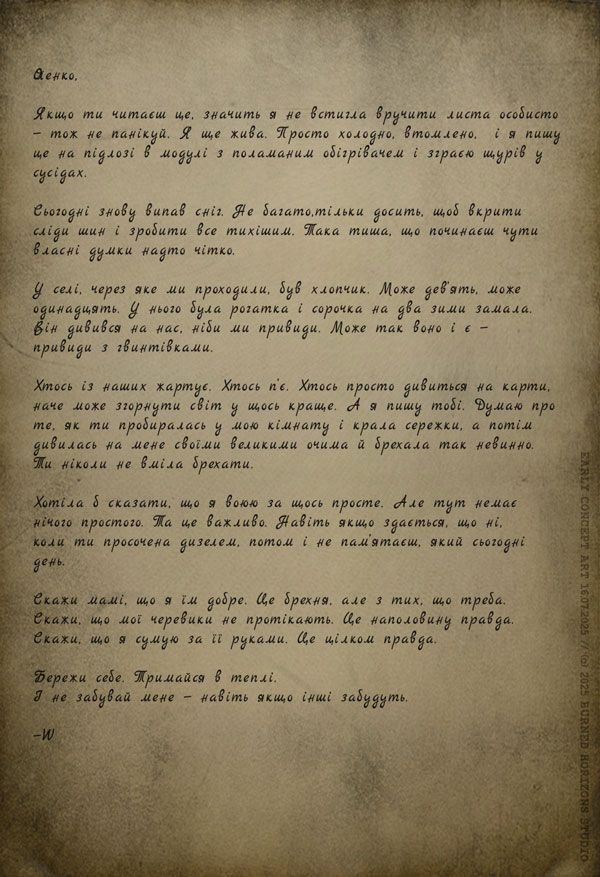 Оленко,
Якщо ти читаєш це, значить я не встигла вручити листа особисто
– тож не панікуй. Я ще жива. Просто холодно, втомлено, і я пишу
це на підлозі в модулі з поламаним обігрівачем і зграєю щурів у
сусідах.
Сьогодні знову випав сніг. Не багато,тільки досить, щоб вкрити
сліди шин і зробити все тихішим. Така тиша, що починаєш чути
власні думки надто чітко.
У селі, через яке ми проходили, був хлопчик. Може дев'ять, може
одинадцять. У нього була рогатка і сорочка на два зими замала.
Він дивився на нас, ніби ми привиди. Може так воно і є –
привиди з гвинтівками.
Хтось із наших жартує. Хтось п'є. Хтось просто дивиться на карти,
наче може згорнути світ у щось краще. А я пишу тобі. Думаю про
те, як ти пробиралась у мою кімнату і крала сережки, а потім
дивилась на мене своїми великими очима й брехала так невинно.
Ти ніколи не вміла брехати.
Хотіла б сказати, що я воюю за щось просте. Але тут немає
нічого простого. Та це важливо. Навіть якщо здається, що ні,
коли ти просочена дизелем, потом і не пам'ятаєш, який сьогодні
день.
Скажи мамі, що я їм добре. Це брехня, але з тих, що треба.
Скажи, що мої черевики не протікають. Це наполовину правда.
Скажи, що я сумую за її руками. Це цілком правда.
Бережи себе. Тримайся в теплі.
І не забувай мене – навіть якщо інші забудуть.
–W
EARLY CONCEPT ART 16.07.2025 // (c) 2025 BURNED HORIZONS STUDIO